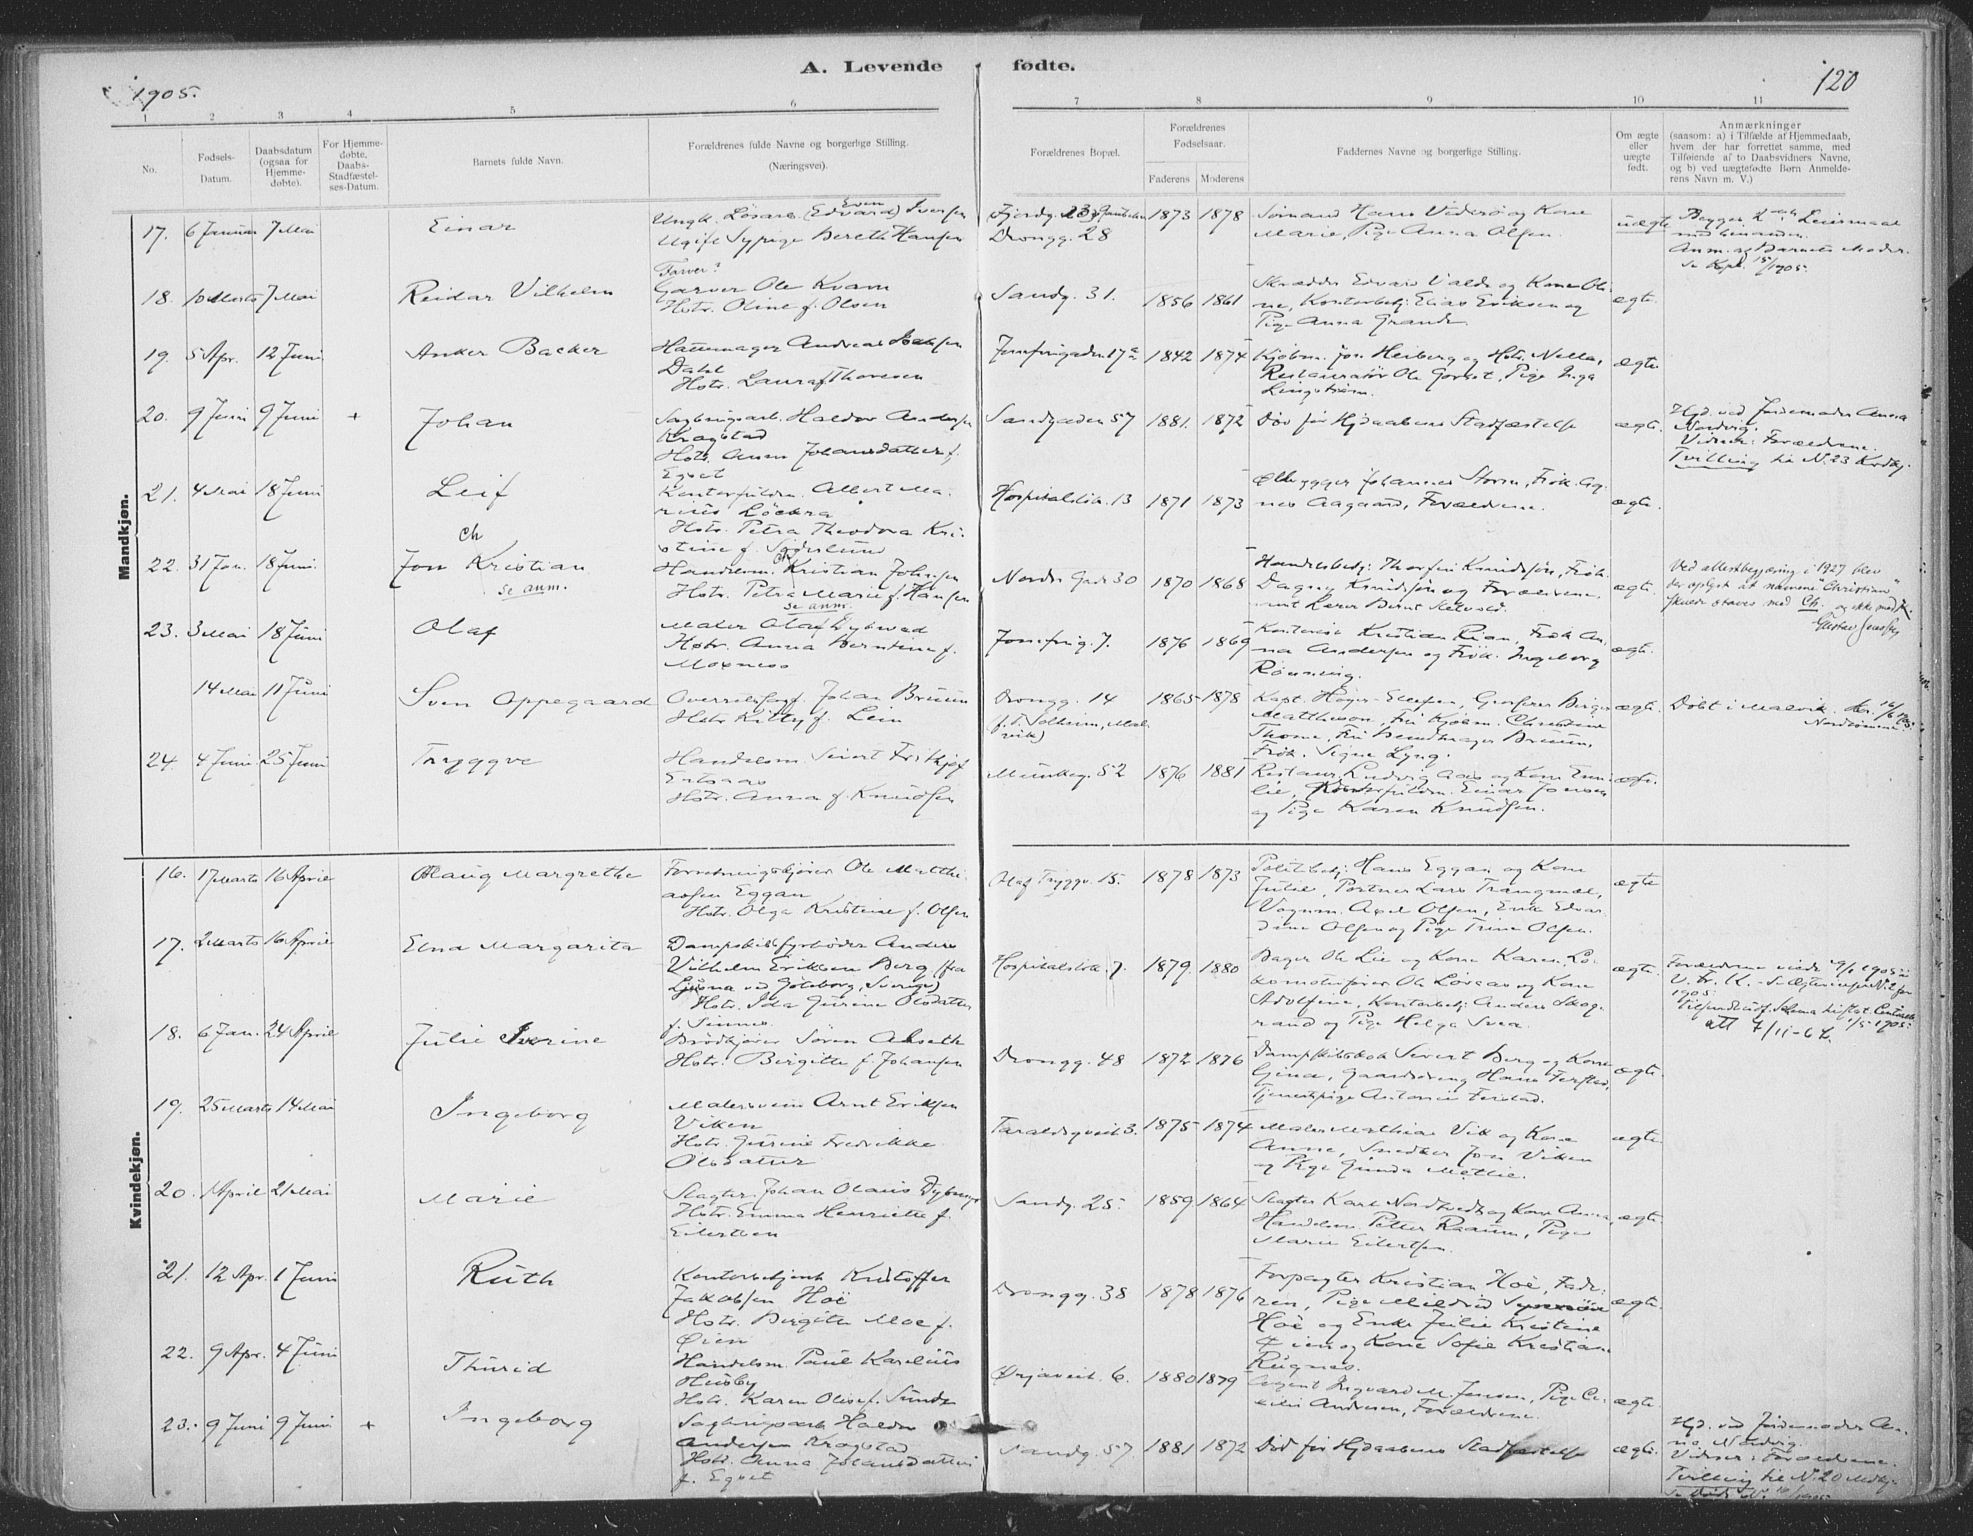 A. Levende fødte.
1905.
120
1 2 3 4 5 6 7 8 9 10 11
No.
Fødsels-Datum.
Daabsdatum (ogsaa for Hjemme-døbte).
For Hjemme-døbte, Daabs-Stadfæstel-ses-Datum.
Barnets fulde Navn.
Forældrenes fulde Navne og borgerlige Stilling.
(Næringsvei).
Forældrenes Bopæl.
Forældrenes Fødselsaar.
Faderens Moderens
Faddernes Navne og borgerlige Stilling.
Om ægte eller uægte født.
Anmærkninger
(saasom: a) i Tilfælde af Hjemmedaab,
hvem der har forrettet samme, med
Tilføiende af to Daabsvidners Navne,
og b) ved uægtefødte Børn Anmelde-
rens Navn m. V.)
Mandkjøn.
17. 6 Januar 7 Mai Einar
Ungk. Løsarb. (Edvard) Even Iversen
Ugift Sypige Bereth Hansen
Fjordg. 23
Drongg. 28
1873 1878
Sømand Hans Viderø og Kone
Marie, Pige Anna Olsen.
uægte
Begges 2det Leiermaal
med hinanden.
Anm. af Barnets Moder.
18. 10 Marts 7 Mai Reidar Vilhelm
Farver?
Garver Ole Kvam
Hstr. Oline f. Olsen
Sandg. 31. 1856 1861
Skrædder Edvard Valde og Kone Oli-
ne, Kontorbetj. Elias Eriksen og
Pige Anna Grande
ægte.
19. 5 Apr. 12 Juni Anker Backer
Hattemager Andreas Isaksen
Dahl
Hstr. Laura f. Thoresen
Jomfrugaden 17a 1842 1874
Kjøbm. Jon Heiberg og Hstr. Nella,
Restauratør Ole Gorset, Pige Inga
Lingstrøm.
ægte
20. 9 Juni 9 Juni + Johan
Sagbrugsarb. Haldor Andersen
Kragstad
Hstr. Anna Johansdatter f.
Egset
Sandgaden 57 1881. 1872
Død før Hjdaabens Stadfæstelse
ægte.
Hjd. ved Jordemoder Anna
Nordvig.
Vidner: Forældrene.
Tvilling til N. 23 Kvdkj.
21. 4 Mai 18 Juni Leif
Kontorfuldm. Albert Ma-
rius Løckra
Hstr. Petra Theodora Kri-
stine f. Søderlund
Hospitalslk. 13 1871 1873
Ølbrygger Johannes Storm, Frøk. Ag-
nes Aagaard, Forældrene.
ægte.
22. 31 Jan. 18 Juni. Jon Kristian
Ch
se anm.
Handelsm. Kristian Johnsen
Ch
Hstr. Petra Marie f. Hansen
se anm.
Nordre Gade 30 1870 1868
Handelsbetj. Thorfin Knudsøn, Frøk.
Dagny Knudsøn og Forældrene,
samt Lærer Bernt
ægte.
Ved attestbegjæring i 1927 blev
der oplyst at navnene "Christian"
skulde staves med Ch og ikke med K.
Gustav Jenssen
23. 3 Mai 18 Juni Olaf
Maler Olaf Dybwad
Hstr. Anna Berntine f.
Moxness
Jomfrug. 7. 1876 1869
Kontorist Kristian Rian, Frøk. An-
na Andersen og Frøk. Ingeborg
Rønning.
ægte.
14 Mai 11 Juni Sven Oppegaard
Overretssagf. Johan Bruun
Hstr. Kitty f. Lein
Drongg. 14
(f. t. Solheim, Mal-
vik)
1865 1878
Kapt. Høyer-Ellefsen, Grosserer Birger
Matthesson, Fru Kjøbm. Christine
Thome, Fru Bundtmager Bruun,
Frøk. Signe Lyng.
ægte.
Døbt i Malvik.
24. 4 Juni 25 Juni Tryggve
Handelsm. Sivert Frithjof
Ertsaas
Hstr. Anna f. Knudsen
Munkeg. 52 1876 1881
Restaur. Ludvig Aas og Kone Emi-
lie, Kontorfuldm. Einar Jensen
og Pige Karen Knudsen.
ægte.
Kvindekjøn.
16. 17 Marts 16 April Olaug Margrethe
Forretningskjører Ole Matthi-
assen Eggan
Hstr. Olga Kristine f. Olsen
Olaf Tryggv. 15. 1878 1873
Politibetj. Hans Eggan og Kone
Julie, Portner Lars Trangmæl,
Vognm. Axel Olsen, Enke Edvar-
dine Olsen og Pige Trine Olsen.
ægte
17. 2 Marts 16 April Elna Margarita
Dampskibsfyrbøder Anders
Vilhelm Eriksen Berg (fra
Ljusna ved Gøteborg, Sverige)
Hstr. Ida Gurine Olsdatter
f. Sinnes
Hospitalslk. 7. 1879 1880
Bager Ole Lie og Kone Karen, Lo-
komotivfører Ole Løvaas og Kone
Adolfine, Kontorbetj. Anders Skog-
rand og Pige Helga Svea.
ægte.
Forældrene viede 19/1 1905 i
V. Fr. K. - Se Ægtevieser N. 2 for
1905.
att 7/11-62.
18. 6 Jan. 24 April Julie Iverine
Brødkjører Søren Alseth
Hstr. Birgitte f. Johansen
Drongg. 48 1872 1876
Dampskibskok Sivert Berg og Kone
Gina, Gaardsdreng Hans Ferstad,
Tjenestepige Antonie Ferstad.
ægte.
19. 25 Marts 14 Mai Ingeborg
Malersvend Arnt Eriksen
Viken
Hstr. Gurine Fredrikke
Olsdatter
Taraldsgveit 3. 1875 1874
Maler Mathias Vik og Kone
Anne, Snedker Jon Viken
og Pige Gunda Methie.
ægte
20. 1 April 21 Mai Marie
Slagter Johan Olaus
Hstr. Emma Henriette f.
Eilertsen
Sandg. 25. 1859 1864
Slagter Karl Nordtvedt og Kone Anna,
Handelsm. Petter Raaum, Pige
Marie Eilertsen.
ægte.
21. 12 Apr. 1 Juni Ruth
Kontorbetjent Kristoffer
Jakobsen Hoë
Hstr. Bergitte Moe f.
Øien
Drongg. 38 1878 1876
Forpagter Kristian Hoë, Fade-
ren, Pige Mildrid Synnøve
Hoë og Enke Julie Kristine
Øien og Kone Sofie Kristian
Rugnes.
ægte.
22. 9 Apr. 4 Juni Thurid
Handelsm. Paul Karelius
Husby
Hstr. Karen Olise f. Sunde
Ørjaveit. 6. 1880 1879
Agent Ingvard M. Jensen, Pige Ce-
cilie Andresen, Forældrene.
ægte.
23. 9 Juni 9 Juni + Ingeborg
Sagbrugsarb. Haldor
Andersen Kragstad
Hstr. Anna Johansdatter
f. Egset
Sandg. 57 1881 1872
Død før Hjdaabens Stadfæstelse
ægte.
Hjd. ved Jordemoder An-
na Nordvig.
Vidner: Forældrene.
Tvilling til N. 20 Mdkj.